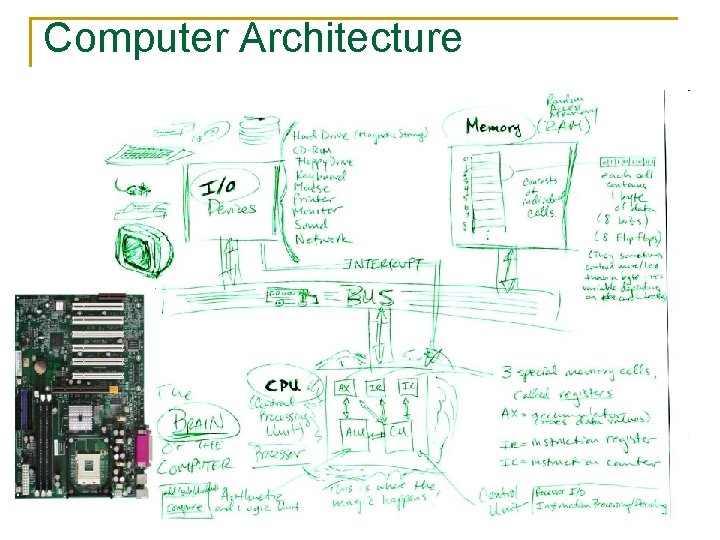 Computer Architecture
Random
Access
Memory
Memory (RAM)
Hard Drive (Magnetic Storage)
CD-ROM
Floppy Drive
Keyboard
Mouse
Printer
Monitor
Sound
Network
I/O
Devices
0
1
2
3
4
5
6
7
8
consists
of
individual
cells.
each cell
contains
1 byte
of data
(8 bits)
(8 Flip flops)
(They sometimes
contain more/less
than a byte
variable depending
on
INTERRUPT
BUS
The
BRAIN
OF THE
COMPUTER
CPU
(Central
Processing
Unit)
Processor
AX IR IC
ALU CU
3 special memory cells,
called registers
AX = accumulator
(stores data values)
IR = instruction register
IC = instruction counter
add/subtract
compare
Arithmetic
and Logic Unit
This is where the
magic happens.
Control
Unit
Processor I/O
Instruction Processing/Decoding